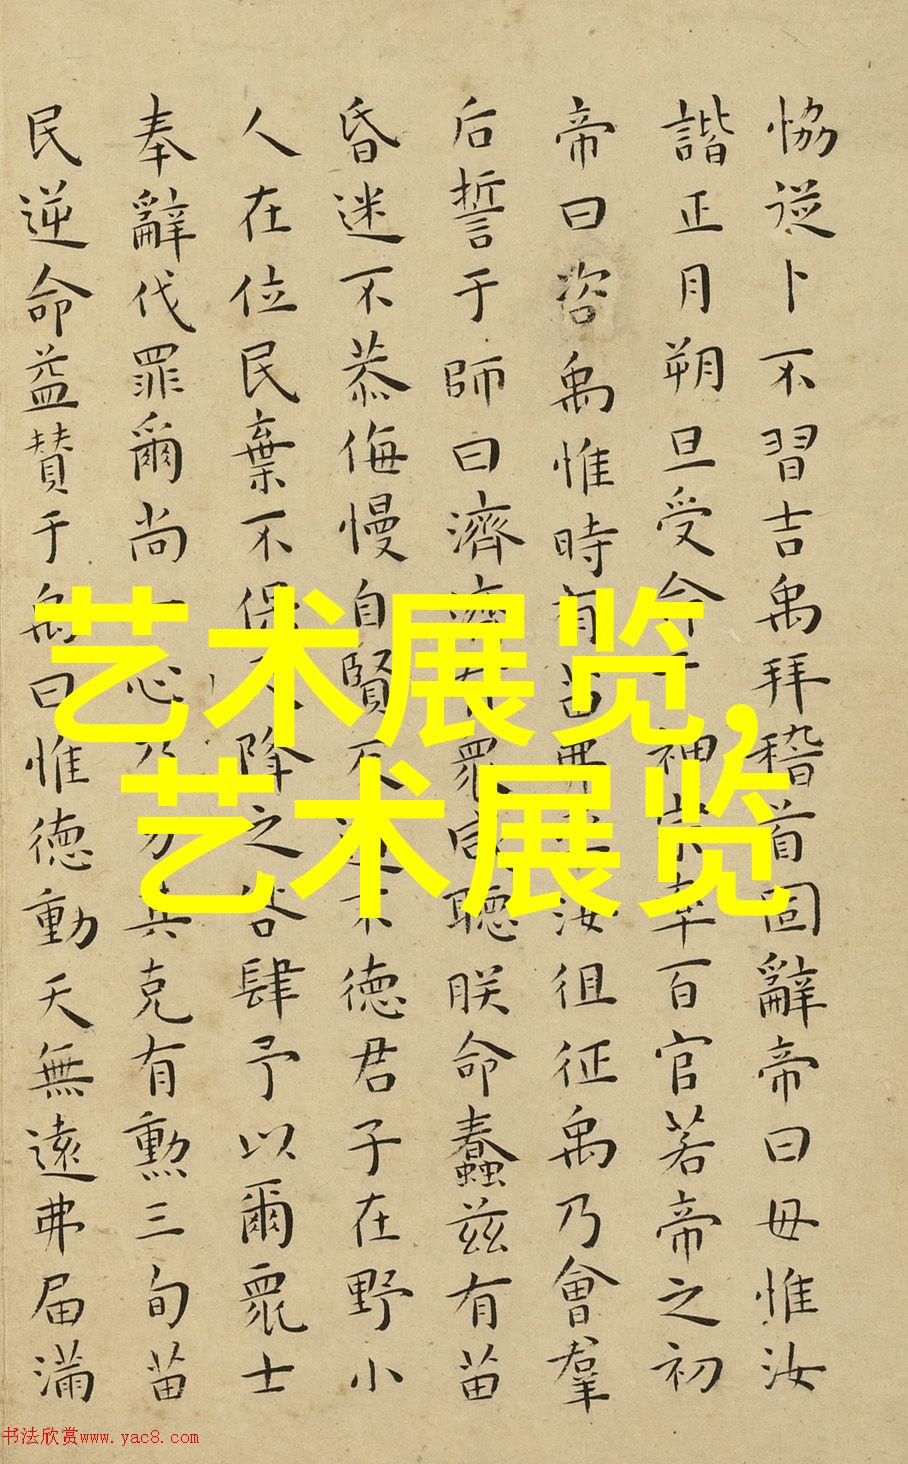 恊從卜不習吉禹拜稽首固辭帝曰毋惟汝
諧正月朔旦受命于神宗率百官若帝之初
帝曰咨禹惟時有苗弗率汝徂征禹乃會羣
后誓于師曰濟濟有衆咸聽朕命蠢兹有苗
昏迷不恭侮慢自賢反道不德君子在野小
人在位民棄不保天降之咎肆予以爾衆士
奉辭伐罪爾尚一心乃力其克有勲三旬苗
民逆命益贊于禹曰惟德動天無遠弗届滿
艺术展览,
艺术展览
书法欣赏www.yac8.com